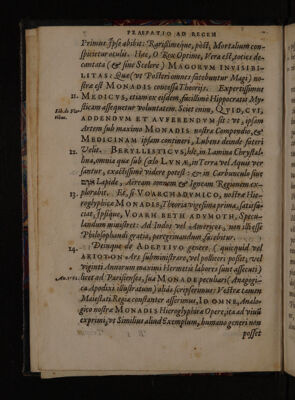 PRAEFATIO AD REGEM
Primus Ipse abibit: Rarissimeque, pòst, Mortalium con-
spicietur oculis. Haec, O Rex Optime, Vera est, toties de-
cantata (& sine Scelere) MAGORVM INVISIBI-
LITAS: Quae (vt Posteri omnes fatebuntur Magi) no-
strae est MONADIS concessa Theorijs. Expertissimus
11. MEDICVS, etiam ex eisdem, facillimè Hippocratis My-
sticam assequetur voluntatem. Sciet enim, QVID,
ADDENDVM ET AVFERENDVM sit: vt, ipsam
Artem sub maximo MONADIS nostrae Compendio, &
MEDICINAM ipsam contineri, Lubens deinde fateri
12. Velit. BERYLLISTICVS, hîc, in Lamina Chrystal-
lina, omnia quae sub Caelo LVNAE, in Terra vel Aquis ver-
santur, exactissimè videre potest: & in Carbunculo siue
Lapide, Aëream omnem & Igneam Regionem ex-
13. plorare. Et, si VOARCHADVMICO, nostrae Hie-
roglyphicae MONADIS, Theoria vigesima prima, satisfa-
ciat, Ipsique, VOARH BETH ADVMOTH, Specu-
landum ministret: Ad Indos vel Americes, non illi esse
Philosophandi gratia, peregrinandum, fatebitur.
14. Denique de ADEPTIVO genere, (quicquid vel
ARIOTON Ars subministrare, vel polliceri possit; vel
viginti Annorum maximi Hermetis labores sunt assecuti)
licet ad Parisienses, sua MONADE peculiari (Anagogi-
ca Apodixi illustratum) aliàs scripserimus: Vestrae tamen
Maiestati Regiae constanter asserimus, ID OMNE, Analo-
gico nostrae MONADIS Hieroglyphicae Opere, ita ad viuum
exprimi, vt Similius aliud Exemplum, humano generi non
posset